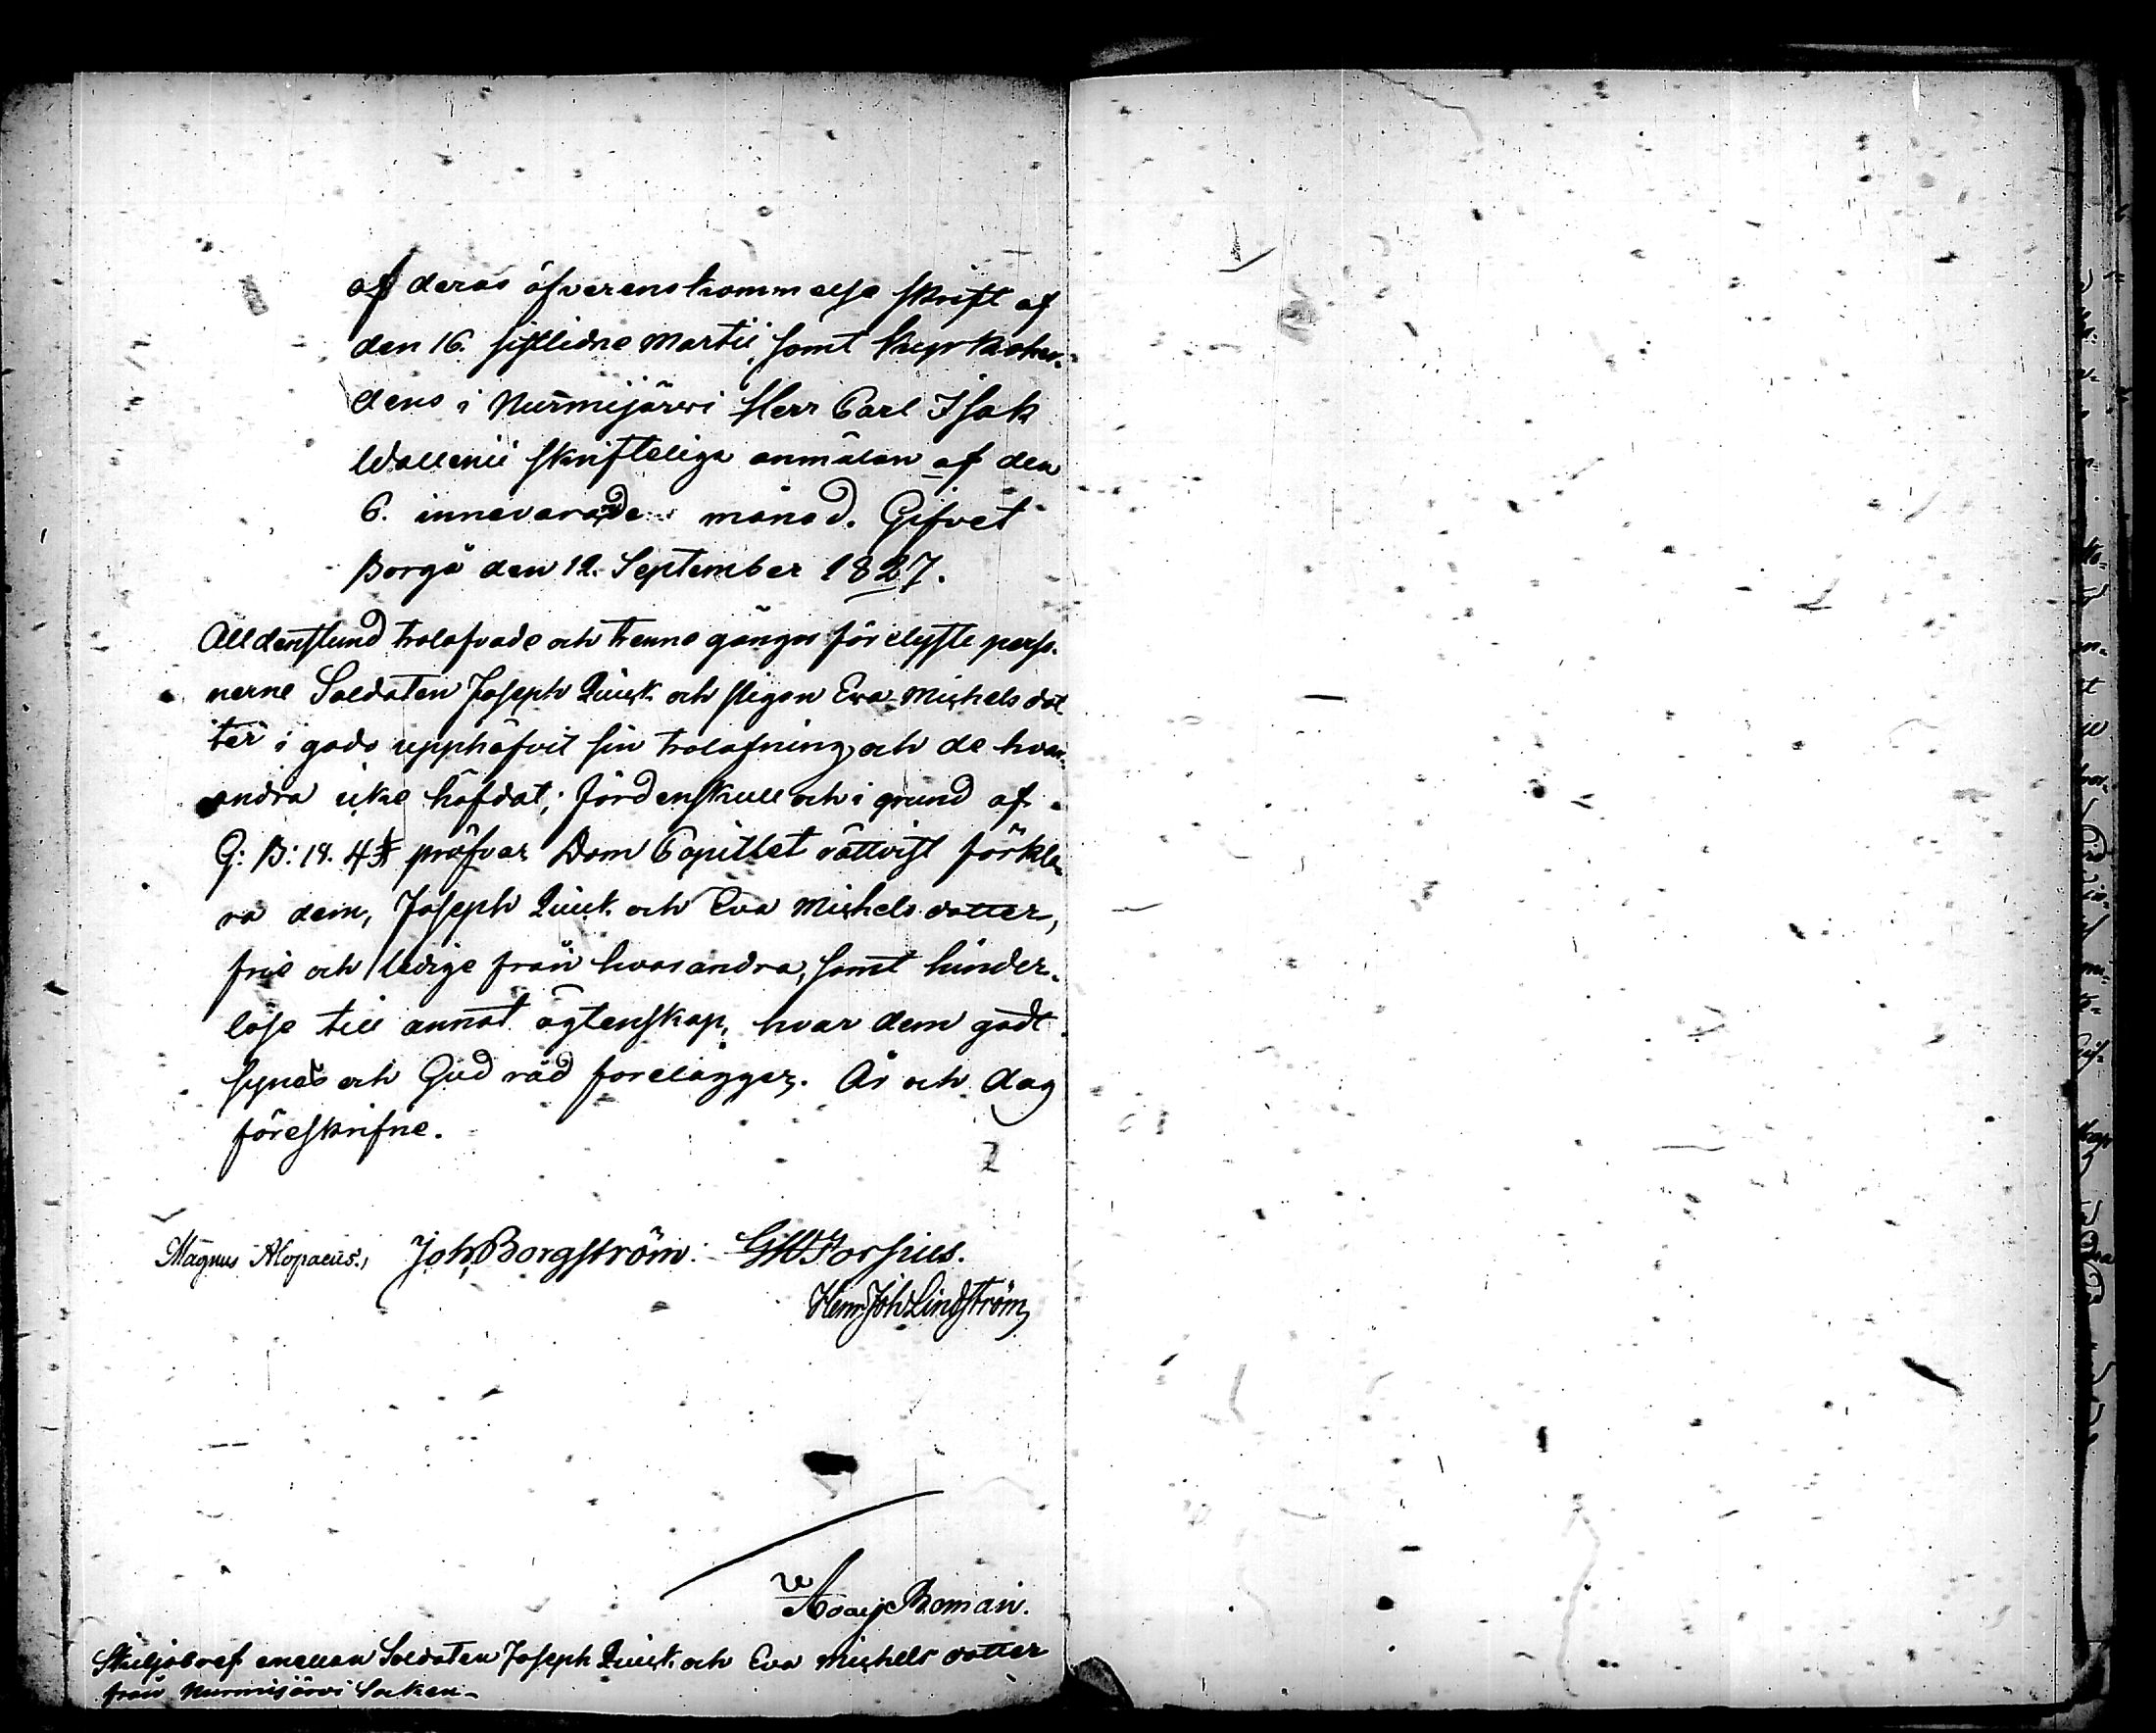 af deras öfverenskommelse skrift af
den 16. sistlidne Martii, samt Kyrkoher-
dens i Nurmijärwi Herr Carl Isak
Wallenii skrifteliga anmälan af den
6. innevarande månad. Gifvet
Borgå den 12. September 1827.
Alldenstund trolofvade och trenne gånger för elyste perso-
nerne Soldaten Joseph Quick och pigan Eva Michels dot-
ter i godo upphäfvit sin trolofning och de hvar-
andra icke häfdat; Fördenskull och i grund af
G: B: 18. 4 § pröfvar Dom Capitlet rättvist förkla-
ra dem, Joseph Quick och Eva Michels dotter,
frie och ledige från hvarandra, samt hinder-
löse till annat ägtenskap, hvar dem godt
synes och Gud råd förelägger. År och dag
föreskrifne.
Magnus Alopaeus. Joh. Borgström. Forsius.
Henr. Joh. Lindström
Roman.
Skiljobref emellan Soldaten Joseph Quick och Eva Michels dotter
från Nurmijärvi Socken